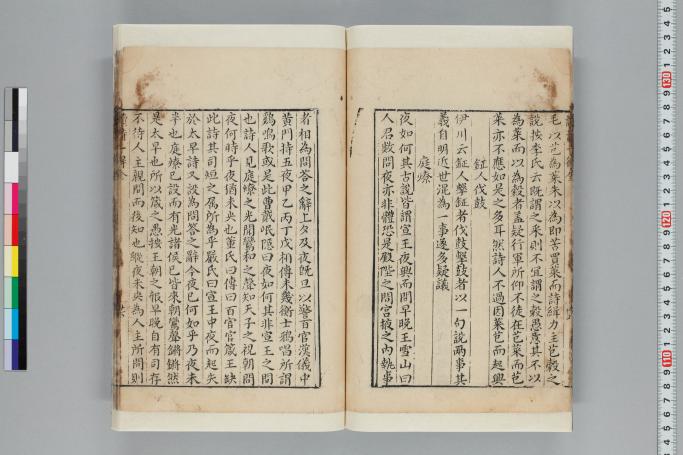 毛以芑為菜朱以為即苦買菜而詩緝力主芑穀之
說按李氏云既謂之采則不宜謂之穀愚意其不以
為菜而以為穀者蓋疑行軍所仰不徒在芑菜而芑
菜亦不應如是之多耳然詩人不過因菜芑而起興
鉦人伐鼓
伊川云鉦人擊鉦者伐鼓擊鼓者以一句說兩事其
義自明近世混為一事遂多疑議
庭燎
夜如何其古說皆謂宣王夜興而問早晚王雪山曰
人君數問夜亦非體恐是殿陛之間宮掖之內執事
者相為問答之辭上夕及夜既旦以警百官漢儀中
黃門持五夜甲乙丙丁戊相傳未幾衛士鷄唱所謂
鷄鳴歌或是此曹戴岷隱曰夜如何其非宣王之問
也詩人見庭燎之光聞鸞和之聲知天子之視朝問
夜何時乎夜猶未央也董氏曰傳曰百官官箴王缺
此詩其司烜之属所為乎嚴氏曰宣王中夜而起失
於太早詩又設為問答之辭今夜已何如乎乃夜未
半也庭燎已設而有光諸侯已皆來朝鸞聲鏘鏘然
是太早也所以箴之愚按王朝之朝早晚自有司存
不待人主親問而後知也縱夜未央為人主所問則